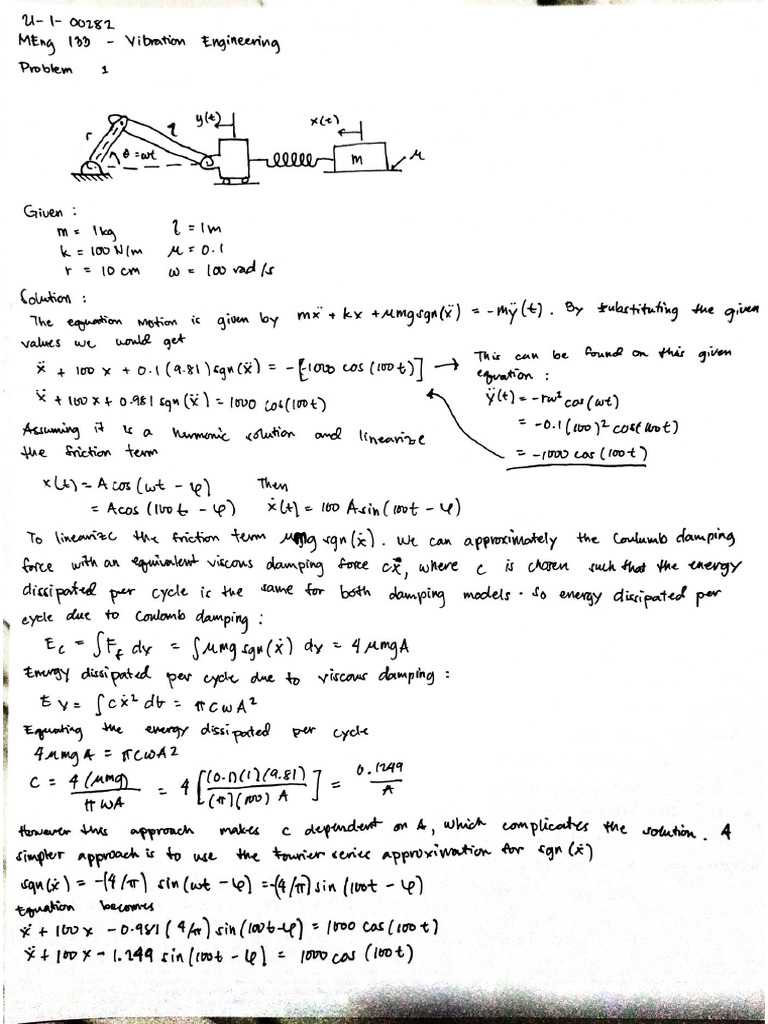 21-1-00282
MEng 133 - Vibration Engineering
Problem 1
r
l
θ = ωt
y(t)
x(t)
m
μ
Given :
m = 1kg l = 1m
k = 100 N/m μ = 0.1
r = 10 cm ω = 100 rad/s
Solution :
The equation motion is given by mẍ + kx + μmg sgn(ẍ) = -mÿ(t). By substituting the given
values we would get
ẍ + 100x + 0.1(9.81) sgn(ẍ) = -[-1000 cos(100t)] → This can be found on this given
equation :
ẍ + 100x + 0.981 sgn(ẍ) = 1000 cos(100t)
ÿ(t) = -rω² cos(ωt)
= -0.1(100)² cos(100t)
= -1000 cos(100t)
Assuming it is a harmonic solution and linearize
the friction term
x(t) = A cos(ωt - φ) Then
= A cos(100t - φ) ẋ(t) = 100 A sin(100t - φ)
To linearize the friction term μmg sgn(ẋ). We can approximately the Coulumb damping
force with an equivalent viscous damping force cẋ, where c is chosen such that the energy
dissipated per cycle is the same for both damping models. So energy dissipated per
cycle due to Coulomb damping :
Ec = ∫Ff dx = ∫μmg sgn(ẋ) dx = 4μmgA
Energy dissipated per cycle due to viscous damping :
Ev = ∫cẋ² dt = πcωA²
Equating the energy dissipated per cycle
4μmgA = πcωA²
c = 4(μmg) / πωA = 4[(0.1)(1)(9.81) / (π)(100) A] = 0.1249 / A
However this approach makes c dependent on A, which complicates the solution. A
simpler approach is to use the fourier series approximation for sgn(ẋ)
sgn(ẋ) = -(4/π) sin(ωt - φ) = -(4/π) sin(100t - φ)
Equation becomes
ẍ + 100x - 0.981(4/π) sin(100t - φ) = 1000 cos(100t)
ẍ + 100x - 1.249 sin(100t - φ) = 1000 cos(100t)